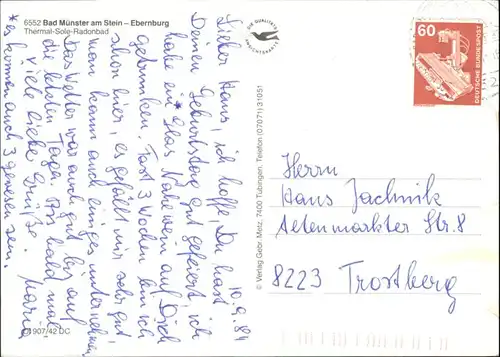 6552 Bad Münster am Stein – Ebernburg
Thermal-Sole-Radonbad
DIE QUALITÄTS
ANSICHTSKARTE
10.9.84
Lieber Hans, ich hoffe, Du hast
Deinen Geburtstag gut gefeiert, ich
habe ein* Glas Nahewein auf Dich
getrunken. Fast 3 Wochen bin ich
schon hier, es gefällt mir sehr gut!
man kann auch einiges unternehmen,
Das Wetter war auch gut bis auf
die letzten Tage. Bis bald mal
viele liebe Grüße Maria
*es können auch 3 gewesen sein.
C 1907/42 DC
© Verlag Gebr. Metz, 7400 Tübingen, Telefon (07071) 31051
60
DEUTSCHE BUNDESPOST
Herrn
Hans Jachnik
Altenmarkter Str. 8
8223 Trostberg